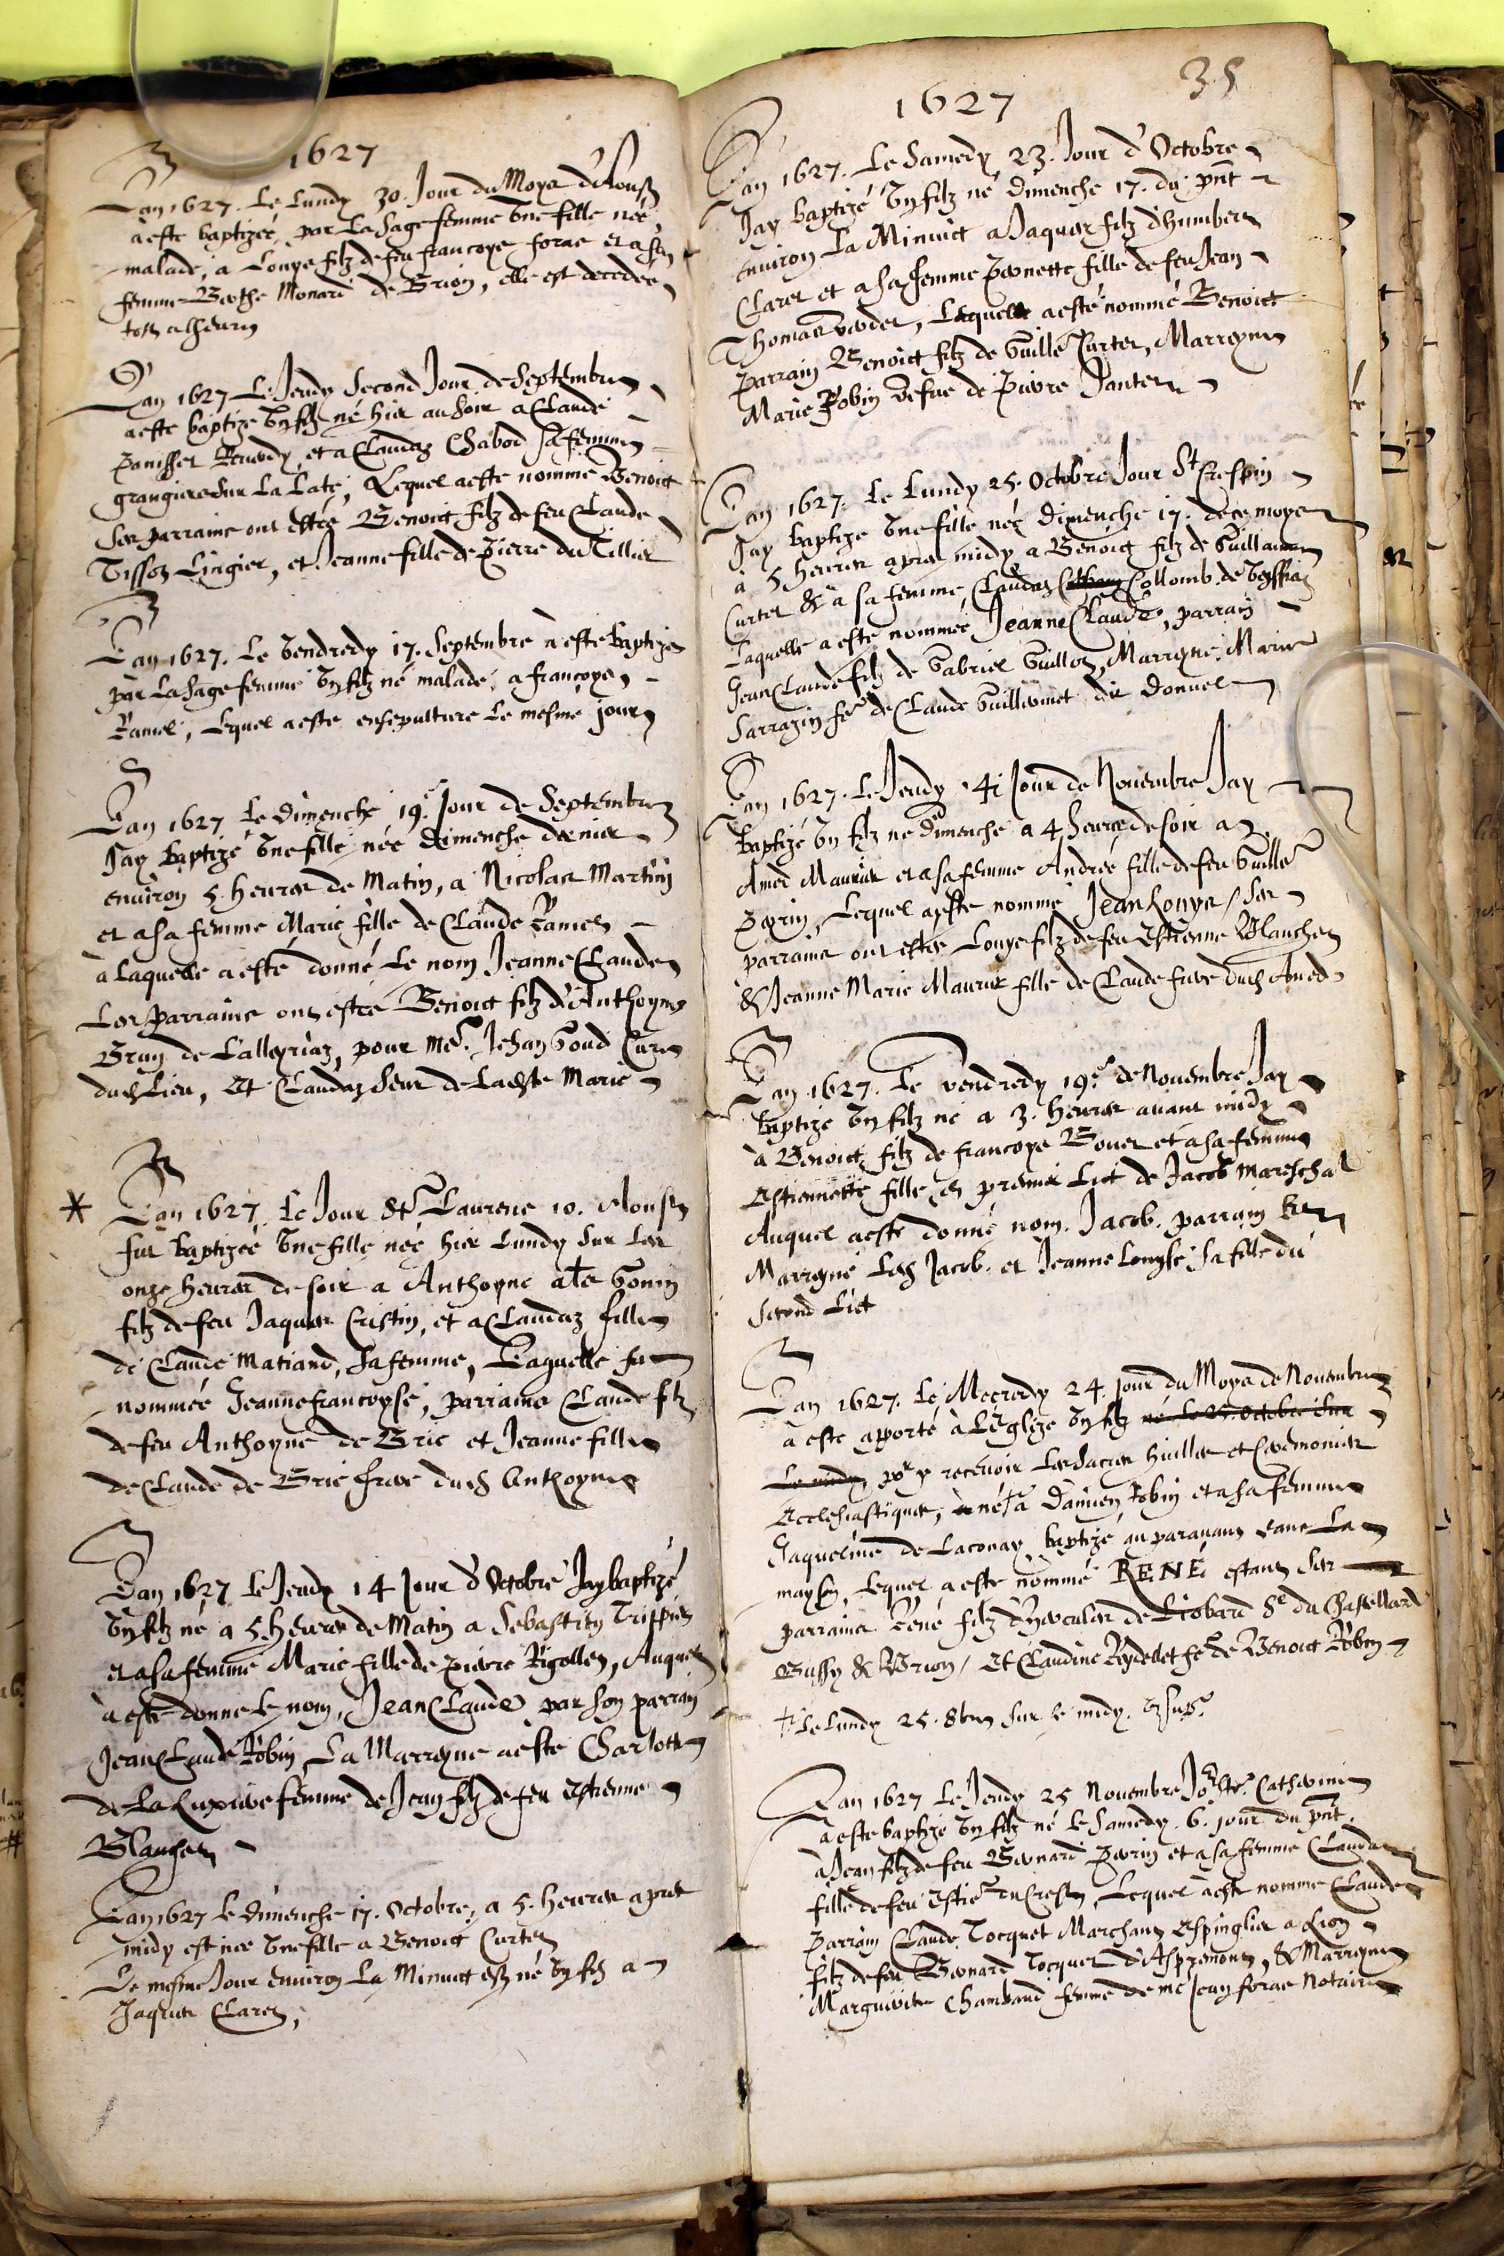 1627
Lan 1627. Le Lundy 30. Jour du Moys d'Aoust
a este baptizée par La sage femme une fille née
malade, a Louys filz de feu francoys foras et a sa
femme Berthe Monard de Brion, elle est decedée
tost alheure
Lan 1627 Le Jeudy second Jour de Septembre
a este baptizé un filz né hier au soir a Claude
Panisset Reverdy et a Claudaz Chabod sa femme
grangiers sur La Late, Lequel a este nommé Benoict
ses parrains ont estés Benoict filz de feu Claude
Tissot Lingier, et Jeanne fille de Pierre du Tillier
Lan 1627. Le Vendredy 17. Septembre à este baptizé
par La sage femme un filz né malade, a francoys
Ramel, Lequel a este ensepulture le mesme jour
Lan 1627 Le Dimenche 19.e Jour de Septembre
Jay baptizé une fille née dimenche dernier
environ 5. heures de Matin, a Nicolas Martin
et a sa femme Marie fille de Claude Ramel
à Laquelle a esté donné le nom Jeanne Claude
Les parrains ont estés Benoict filz d'Anthoyne
Brun de Lalleyriaz, pour Me. Jehan Goud Curé
dud Lieu, Et Claudaz seur de Ladite Marie
* Lan 1627. Le Jour St Laurens 10. Aoust
fut baptizée une fille née hier Lundy sur Les
onze heures de soir a Anthoyne als Gonin
filz de feu Jaques Cristin, et a Claudaz fille
de Claude Matiand, sa femme, Laquelle fut
nommée Jeanne francoyse, parrains Claude filz
de feu Anthoyne de Brie et Jeanne fille
de Claude de Brie frere dud Anthoyne
Lan 1627 Le Jeudy 14 Jour d'Octobre Jay baptizé
un filz né a 5. heures de Matin a Sebastien Trippier
et a sa femme Marie fille de Pierre Rigollet, Auquel
à este donne le nom, Jean Claude par son parrain
Jean Claude Robin, La Marreyne a este Charlotte
de La femme de Jean filz de feu Estienne
Blanchet
Lan 1627 Le dimenche 17. Octobre, a 5. heures apres
midy est née une fille a Benoict Curtet
Le mesme Jour environ La Minuict est né un filz a
Jaques Claret,
1627
35
Lan 1627. Le Samedy 23. Jour d'Octobre
Jay baptizé un filz né Dimenche 17. du pnt
environ La Minuict a Jaques filz d'humbert
Claret et a sa femme Pernette fille de feu Jean
Thomas verdet, Lequel a esté nommé Benoict
parrain Benoict filz de Guille Curtet, Marreyne
Marie Robin vefve de Pierre Jantet
Lan 1627. Le Lundy 25. Octobre Jour St Crespin
Jay baptize une fille née Dimenche 17. de ce moys
a 5 heures apres midy a Benoict filz de Guillaume
Curtet & à sa femme Claudaz Collomb de Veyssiaz
Laquelle a este nommée Jeanne Claude, parrain
Jean Claude filz de Gabriel Guillot, Marreyne Marie
Sarrazin fe de Claude Guillermet dit Donvel
Lan 1627. Le Jeudy 4e Jour de Novembre Jay
baptizé un filz né Dimenche a 4. heures de soir a
Amed Maurier et a sa femme Andrée fille de feu Guille
Perrin, Lequel a este nomme Jean Louys, ses
parrains ont estés Louys filz de feu Estienne Blanchet
& Jeanne Marie Maurier fille de Claude frere dud Amed
Lan 1627. Le vendredy 19.e de Novembre Jay
baptizé un filz né a 3. heures avant midy
à Benoict filz de francoys Bovet et a sa femme
Estiennette fille en premier Lict de Jacob Mareschal
Auquel a este donné nom. Jacob. parrain &
Marreyne Led Jacob. et Jeanne Louyse sa fille du
second Lict
Lan 1627. Le Mecredy 24. jour du Moys de Novembre
à este apporté à L'Eglize un filz né le 25. octobre sur
Le midy pour y recevoir Les sacrees huilles et Ceremonies
Ecclesiastiques, né † a Damien Robin et a sa femme
Jaqueline de Laconay baptizé au paravant dans La
mayson, Lequel a este nommé RENÉ estans ses
parrains René filz d'hercules de Liobard Sr du Chastellard
Bussy & Brion, Et Claudine Reydellet fe de Benoict Robin
† Le Lundy 25. 8bre sur le midy.
Lan 1627 Le Jeudy 25 Novembre Jo. Ste Catherine
à este baptizé un filz né le Samedy. 6. jour du pnt.
à Jean filz de feu Bernard Perrin et a sa femme Claudaz
fille de feu Estie du Crest, Lequel à este nomme Claude
Parrain Claude Tocquet Marchant Espinglier a Lion
filz de feu Bernard Tocquet d'Aspremont, & Marreyne
Marguerite Chambaud femme de me Jean foras Notaire